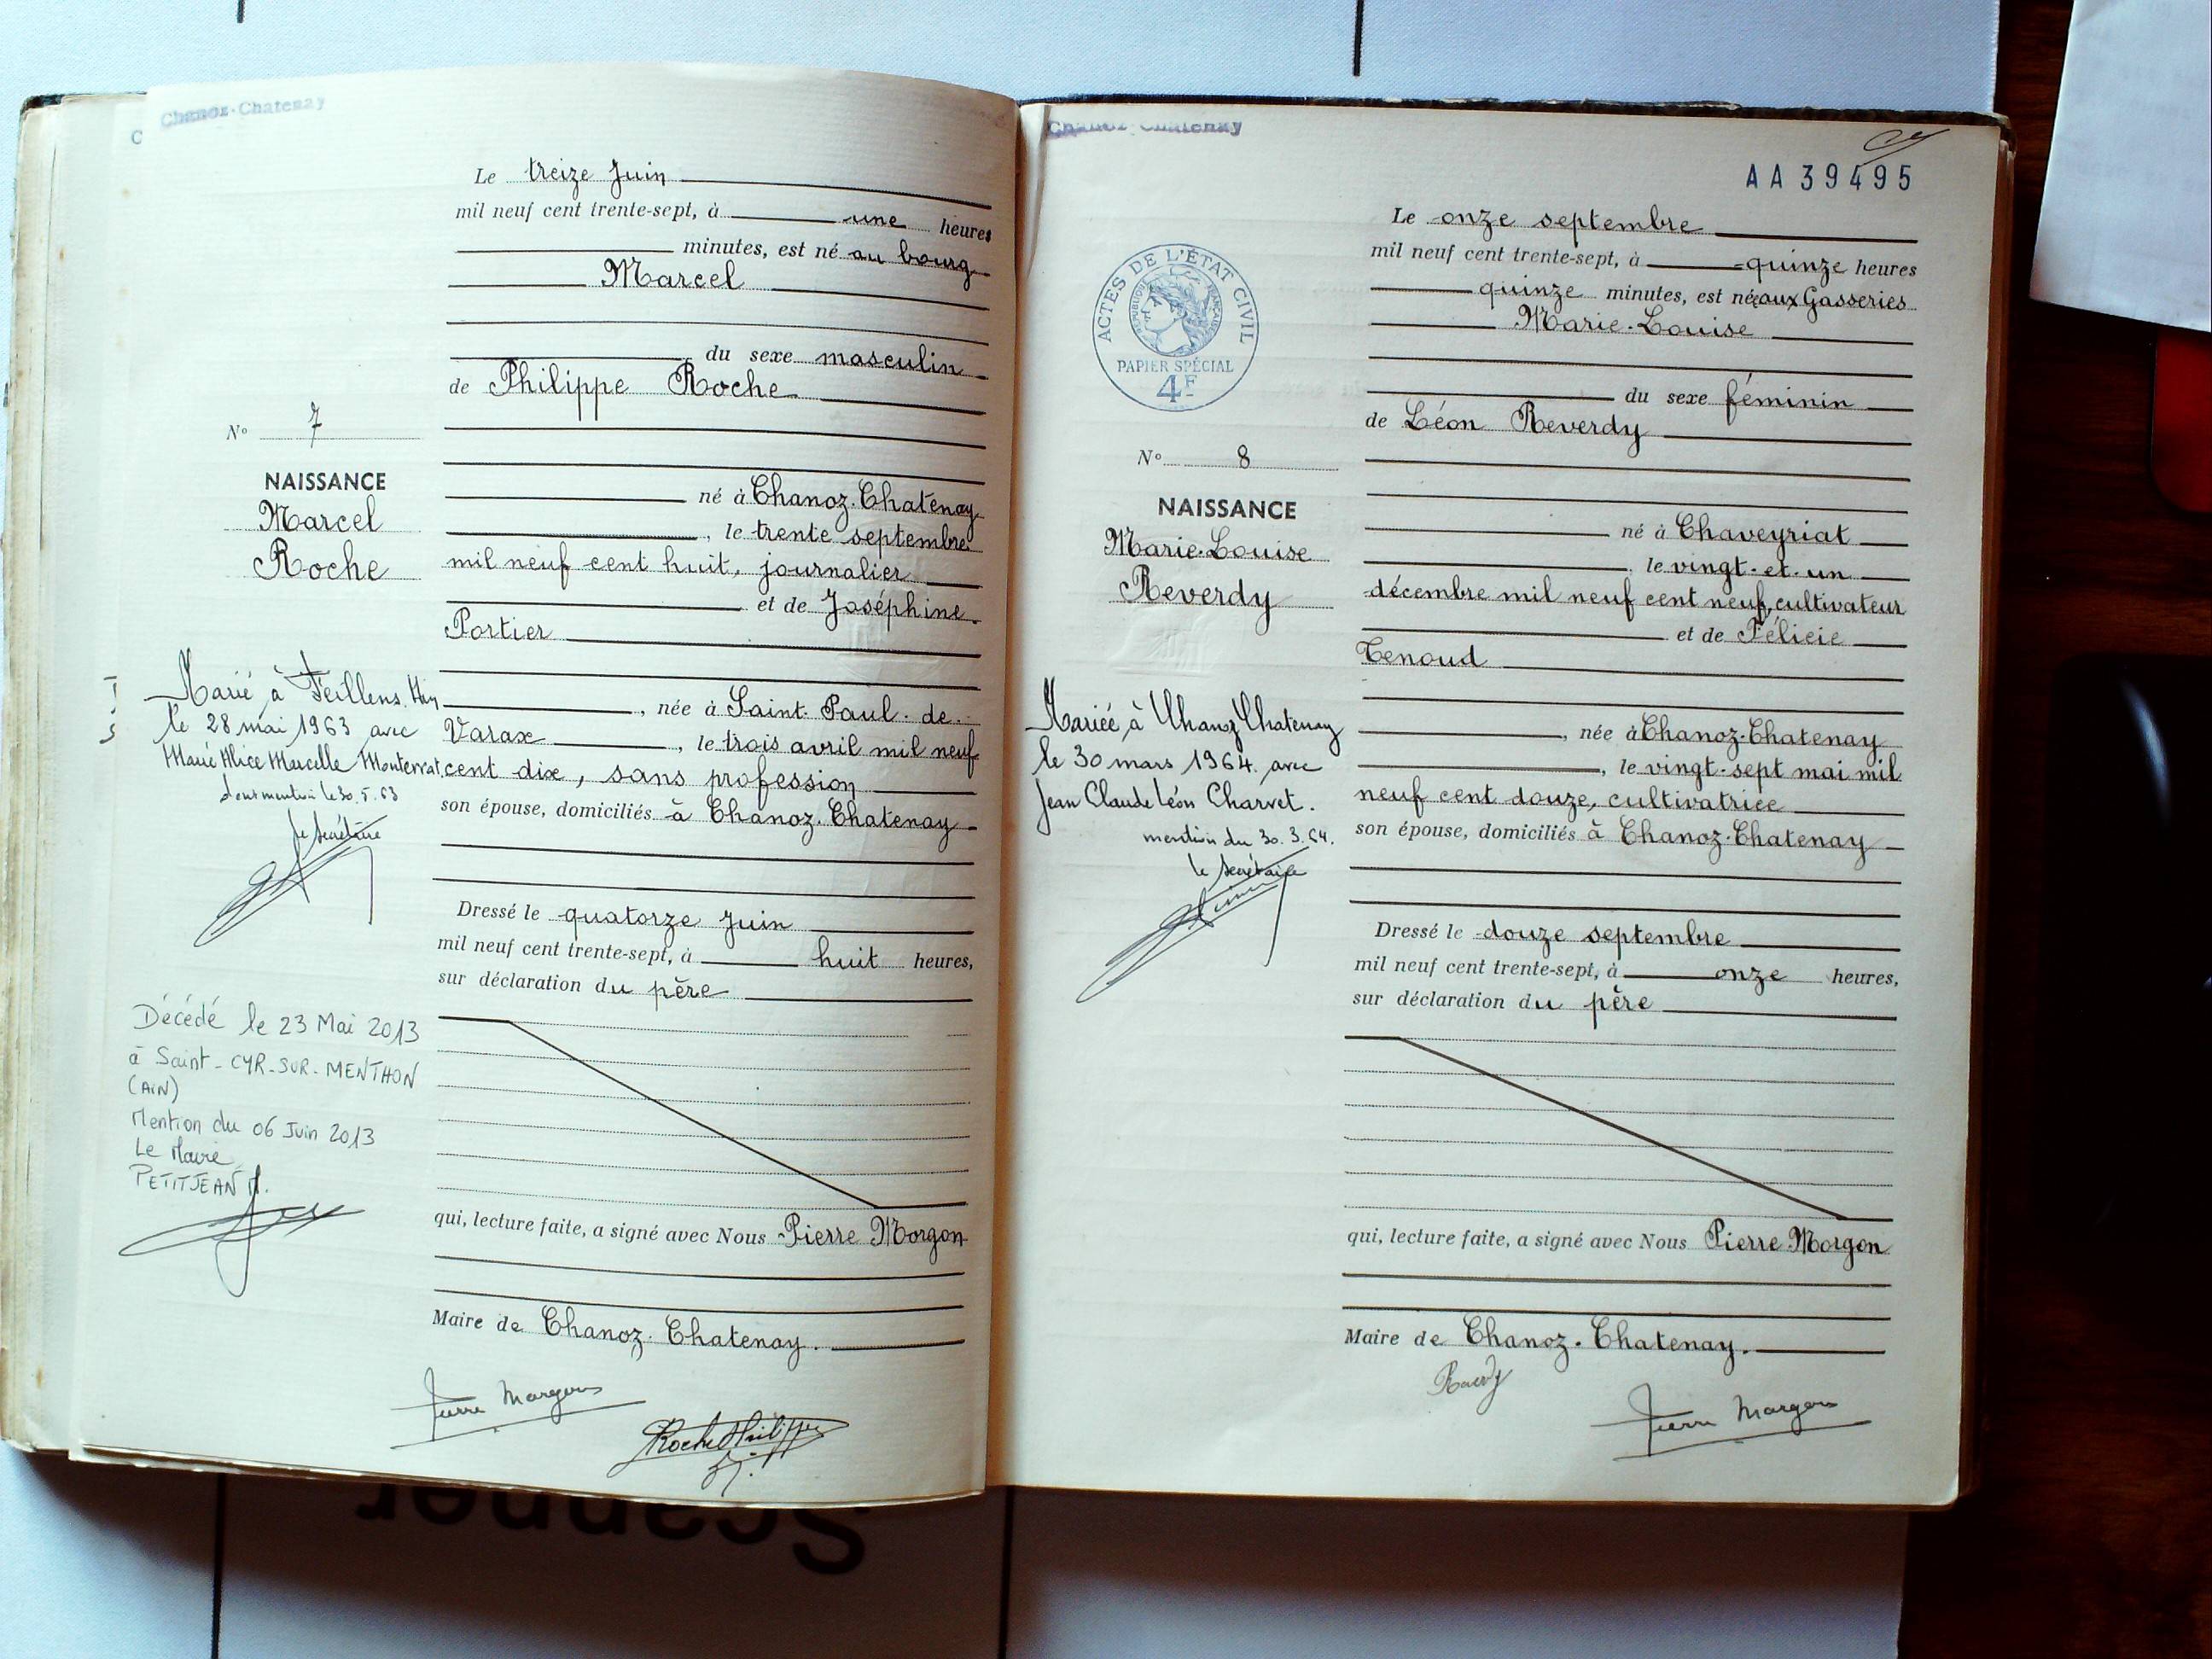 Chanoz-Chatenay
C
Le treize Juin
mil neuf cent trente-sept, à une heures
minutes, est né au bourg
Marcel
du sexe masculin
de Philippe Roche
N° 7
NAISSANCE
Marcel
Roche
né à Chanoz-Chatenay
, le trente septembre
mil neuf cent huit, journalier
et de Joséphine
Portier
, née à Saint-Paul-de-
Varax , le trois avril mil neuf
cent dix, sans profession
son épouse, domiciliés à Chanoz-Chatenay
Marié à Feillens. Ain
le 28 mai 1963 avec
Marie Alice Marcelle Monterrat
mention le 30.5.63
le Secrétaire
Dressé le quatorze Juin
mil neuf cent trente-sept, à huit heures,
sur déclaration du père
Décédé le 23 Mai 2013
à Saint-CYR-SUR-MENTHON
(AIN)
Mention du 06 Juin 2013
Le Maire
PETITJEAN
qui, lecture faite, a signé avec Nous Pierre Morgon
Maire de Chanoz-Chatenay.
Pierre Morgon
Roche Philippe
Chanoz-Chatenay
AA39495
Le onze septembre
mil neuf cent trente-sept, à quinze heures
quinze minutes, est née aux Gasseries
Marie-Louise
du sexe féminin
de Léon Reverdy
ACTES DE L'ÉTAT CIVIL
RÉPUBLIQUE FRANÇAISE
PAPIER SPÉCIAL
4F
N° 8
NAISSANCE
Marie-Louise
Reverdy
né à Chaveyriat
, le vingt-et-un
décembre mil neuf cent neuf, cultivateur
et de Félicie
Tenoud
, née à Chanoz-Chatenay
, le vingt-sept mai mil
neuf cent douze, cultivatrice
son épouse, domiciliés à Chanoz-Chatenay
Mariée à Chanoz Chatenay
le 30 mars 1964 avec
Jean Claude Léon Charvet.
mention du 30.3.64.
le Secrétaire
Dressé le douze septembre
mil neuf cent trente-sept, à onze heures,
sur déclaration du père
qui, lecture faite, a signé avec Nous Pierre Morgon
Maire de Chanoz-Chatenay.
Pierre Morgon
Scanner